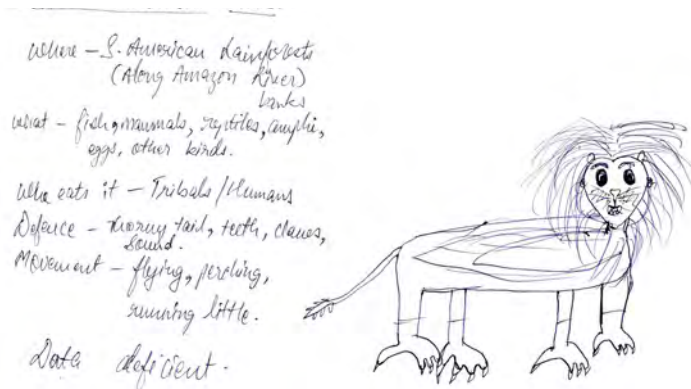 Where – S. American Rainforests
(Along Amazon River)
banks
What – fish, mammals, reptiles, amphi,
eggs, other birds.
Who eats it – Tribals/Humans
Defence – thorny tail, teeth, claws,
sound.
Movement – flying, perching,
running little.
Data deficient.